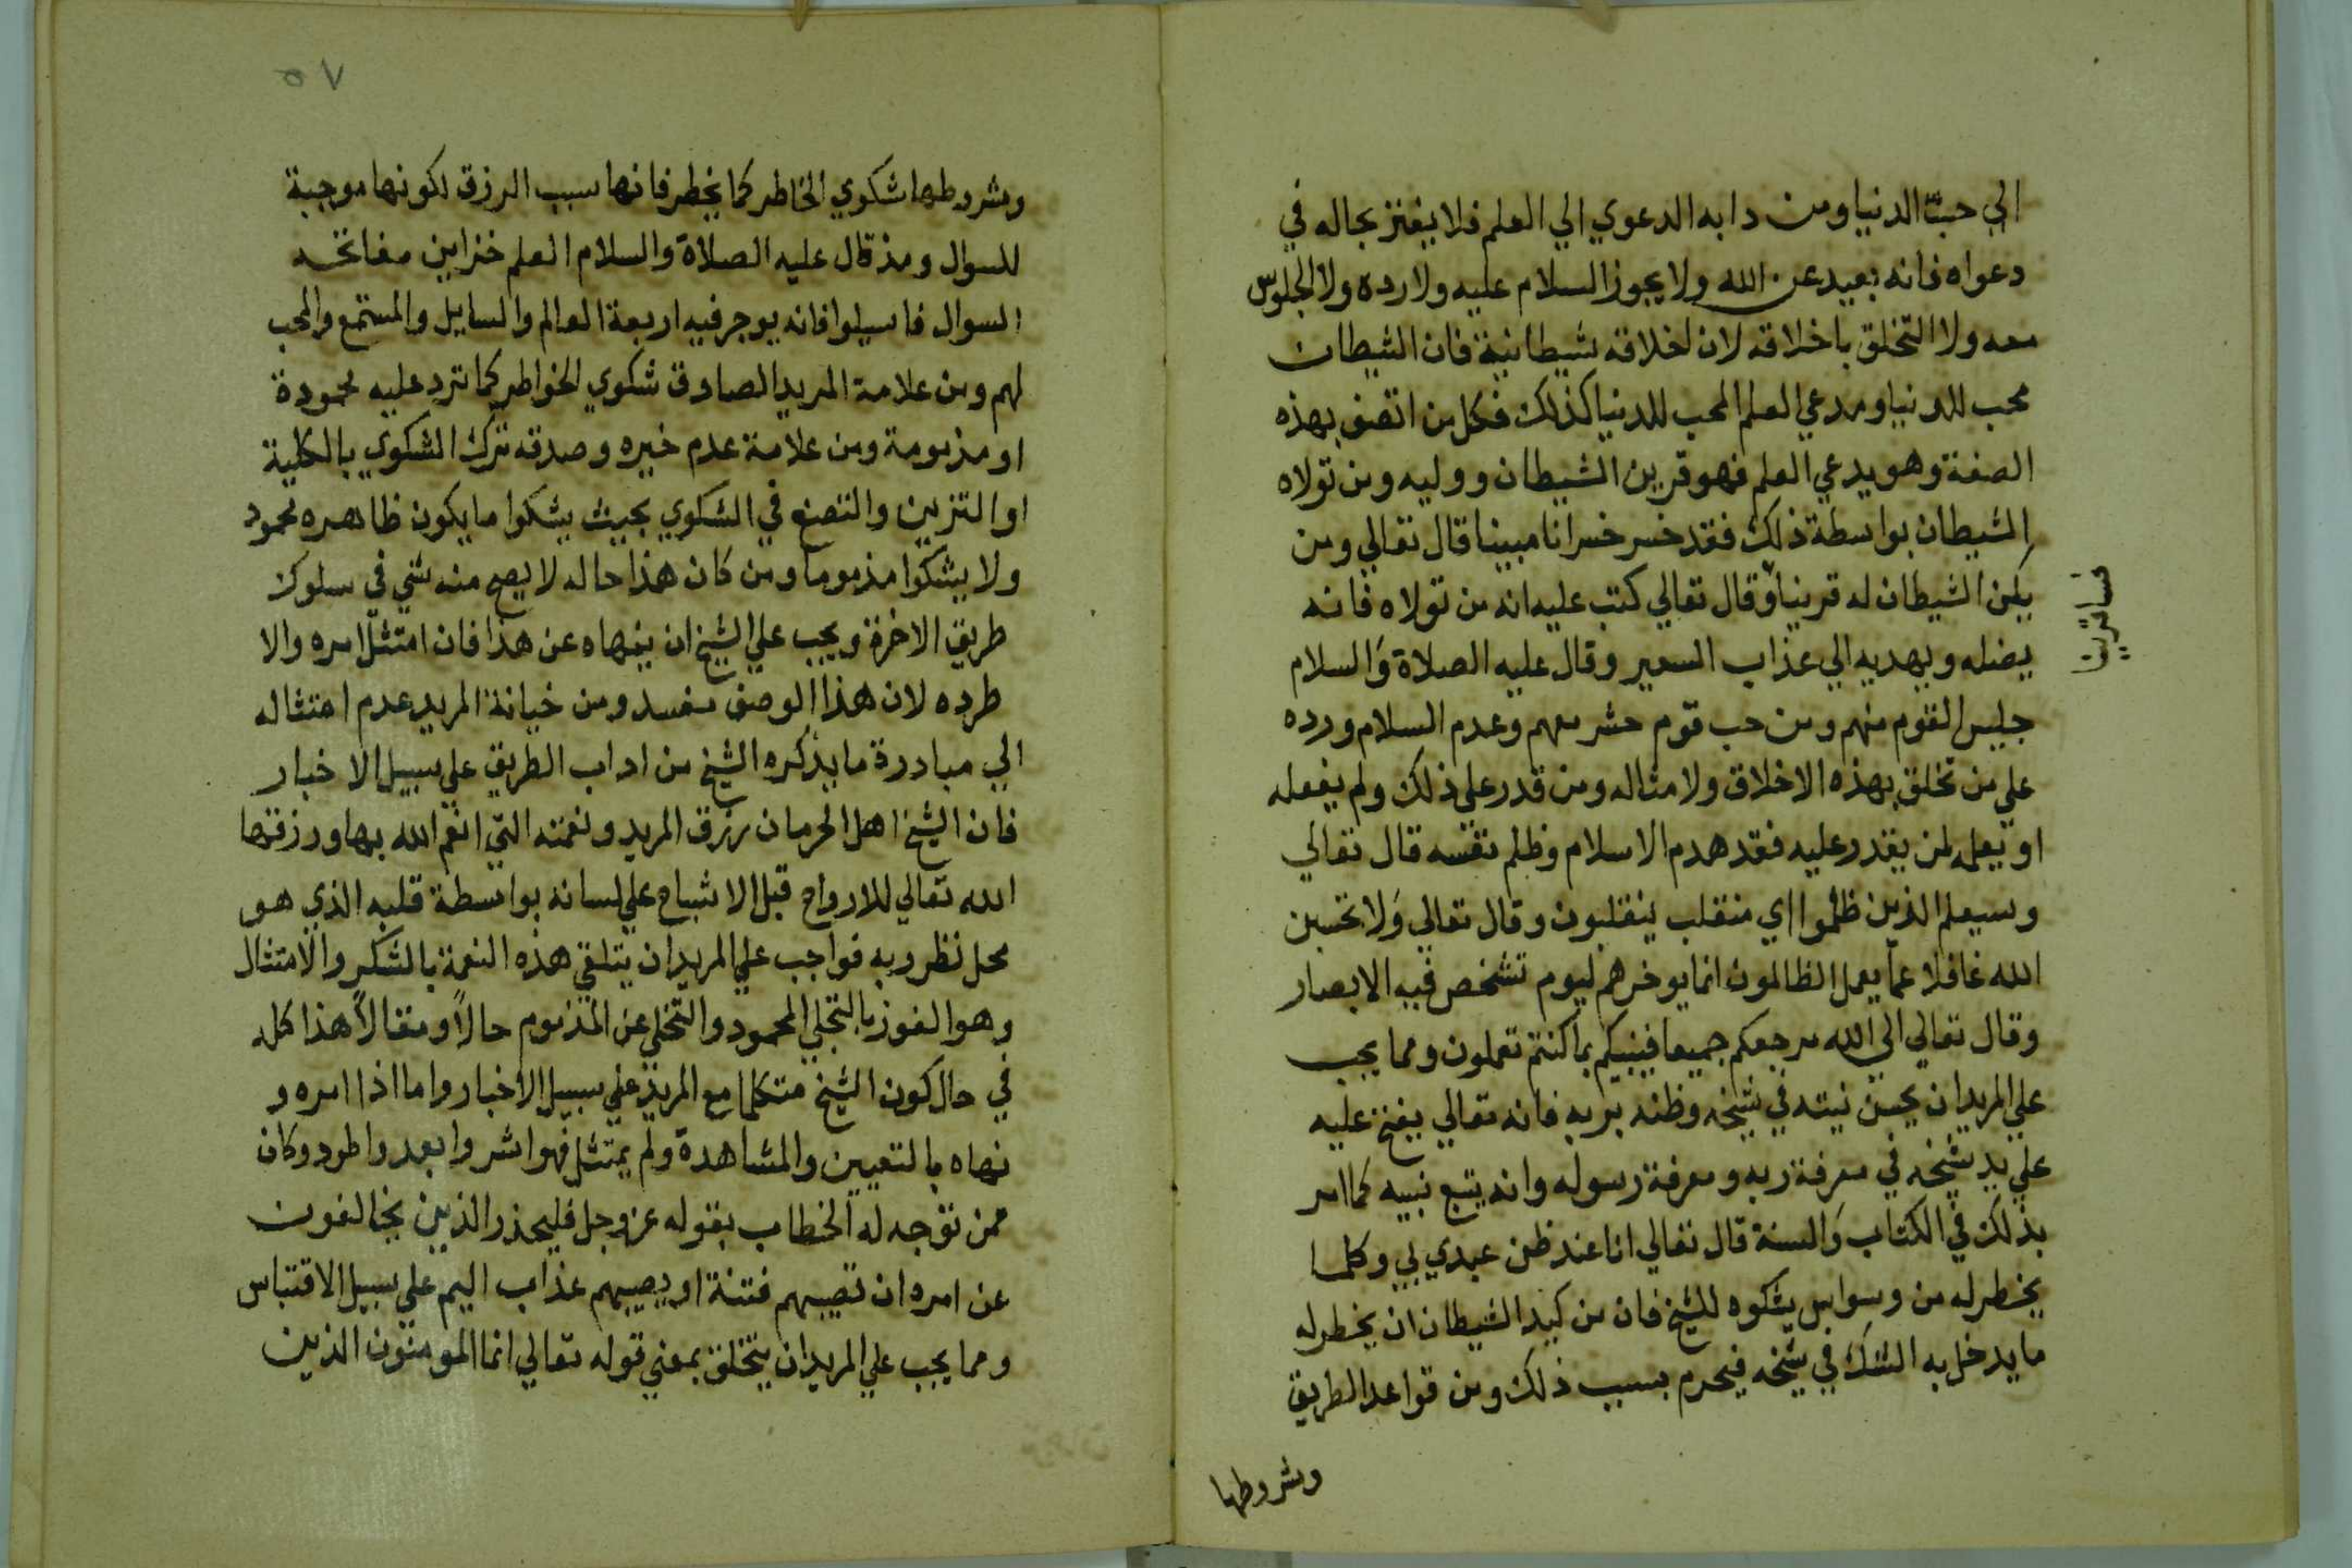 الي حب الدنيا ومن دابه الدعوي الي العلم فلا يغتر بحاله في
دعواه فانه بعيد عن الله ولا يجوز السلام عليه ولا رده ولا الجلوس
معه ولا التخلق باخلاقه لان اخلاقه شيطانية فان الشيطان
محب للدنيا ومدعي العلم المحب للدنيا كذلك فكل من اتصف بهذه
الصفة وهو يدعي العلم فهو قرين الشيطان ووليه ومن تولاه
الشيطان بواسطة ذلك فقد خسر خسرانا مبينا قال تعالي ومن
يكن الشيطان له قرينا وقال تعالي كتب عليه انه من تولاه فانه
فسا قرين
يضله ويهديه الي عذاب السعير وقال عليه الصلاة والسلام
جليس القوم منهم ومن حب قوم حشر معهم وعدم السلام ورده
علي من تخلق بهذه الاخلاق ولامثاله ومن قدر علي ذلك ولم يفعله
او يعمله لمن يقدر عليه فقد هدم الاسلام وظلم نفسه قال تعالي
وسيعلم الذين ظلموا اي منقلب ينقلبون وقال تعالي ولا تحسبن
الله غافلا عما يعمل الظالمون انما يوخرهم ليوم تشخص فيه الابصار
وقال تعالي الي الله مرجعكم جميعا فينبيكم بما كنتم تعملون ومما يجب
علي المريد ان يحسن نيته في شيخه وظنه بربه فانه تعالي يفتح عليه
علي يد شيخه في معرفة ربه ومعرفة رسوله وانه يتبع نبيه كما امر
بذلك في الكتاب والسنة قال تعالي انا عند ظن عبدي بي وكلما
يخطر له من وسواس يشكوه للشيخ فان من كيد الشيطان ان يخطر له
ما يدخل به الشك في شيخه فيحرم بسبب ذلك ومن قواعد الطريق
وشروطها
٥٧
وشروطها شكوي الخاطر كما يخطر فانها سبب الرزق لكونها موجبة
للسوال ومذ قال عليه الصلاة والسلام العلم خزاين مفاتحه
السوال فاسيلوا فانه يوجر فيه اربعة العالم والسايل والمستمع والمحب
لهم ومن علامة المريد الصادق شكوي الخواطر كما ترد عليه محمودة
او مذمومة ومن علامة عدم خيره وصدقه ترك الشكوي بالكلية
او التزين والتصنع في الشكوي بحيث يشكوا ما يكون ظاهره محمود
ولا يشكوا مذموما ومن كان هذا حاله لا يصح منه شي في سلوك
طريق الاخرة ويجب علي الشيخ ان ينهاه عن هذا فان امتثل امره والا
طرده لان هذا الوصف مفسد ومن خيانة المريد عدم امتثاله
الي مبادرة ما يذكره الشيخ من اداب الطريق علي سبيل الاخبار
فان الشيخ اهل الحرمان رزق المريد ونعمته التي انعم الله بها ورزقتها
الله تعالي للارواح قبل الاشباح علي لسانه بواسطة قلبه الذي هو
محل نظر ربه فواجب علي المريد ان يتلقي هذه النعمة بالشكر والامتثال
وهو الفوز بالتجلي المحمود والتخلي عن المذموم حالاً ومقالاً هذا كله
في حال كون الشيخ متكلما مع المريد علي سبيل الاخبار واما اذا امره و
نهاه بالتعيين والمشاهدة ولم يمتثل فهو اشر وابعد واطرد وكان
ممن توجه له الخطاب بقوله عز وجل فليحذر الذين يخالفون
عن امره ان تصيبهم فتنة او يصيبهم عذاب اليم علي سبيل الاقتباس
ومما يجب علي المريد ان يتخلق بمعني قوله تعالي انما المومنون الذين